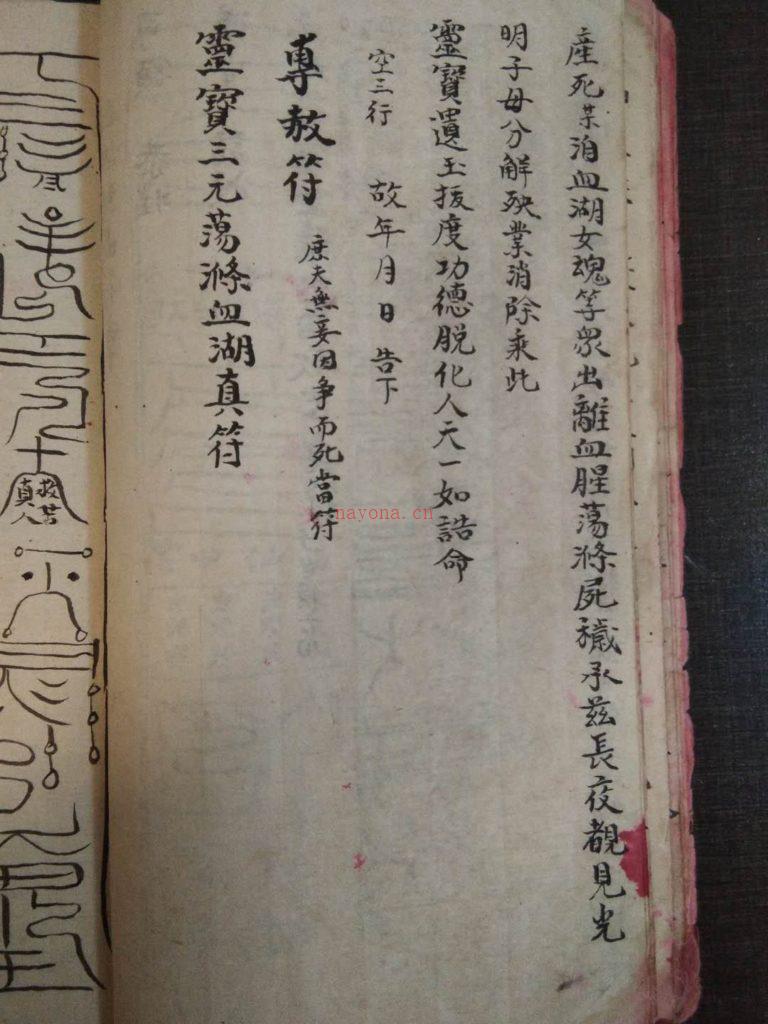 產死某洎血湖女魂等衆出離血腥蕩滌屍穢承兹長夜覩見光
明子母分解殃業消除乘此
靈寶遺玉拔度功德脱化人天一如誥命
空三行 故年月日告下
專赦符 庶夫無妄因争而死當符
靈寶三元蕩滌血湖真符
救苦
真人
nayona.cn